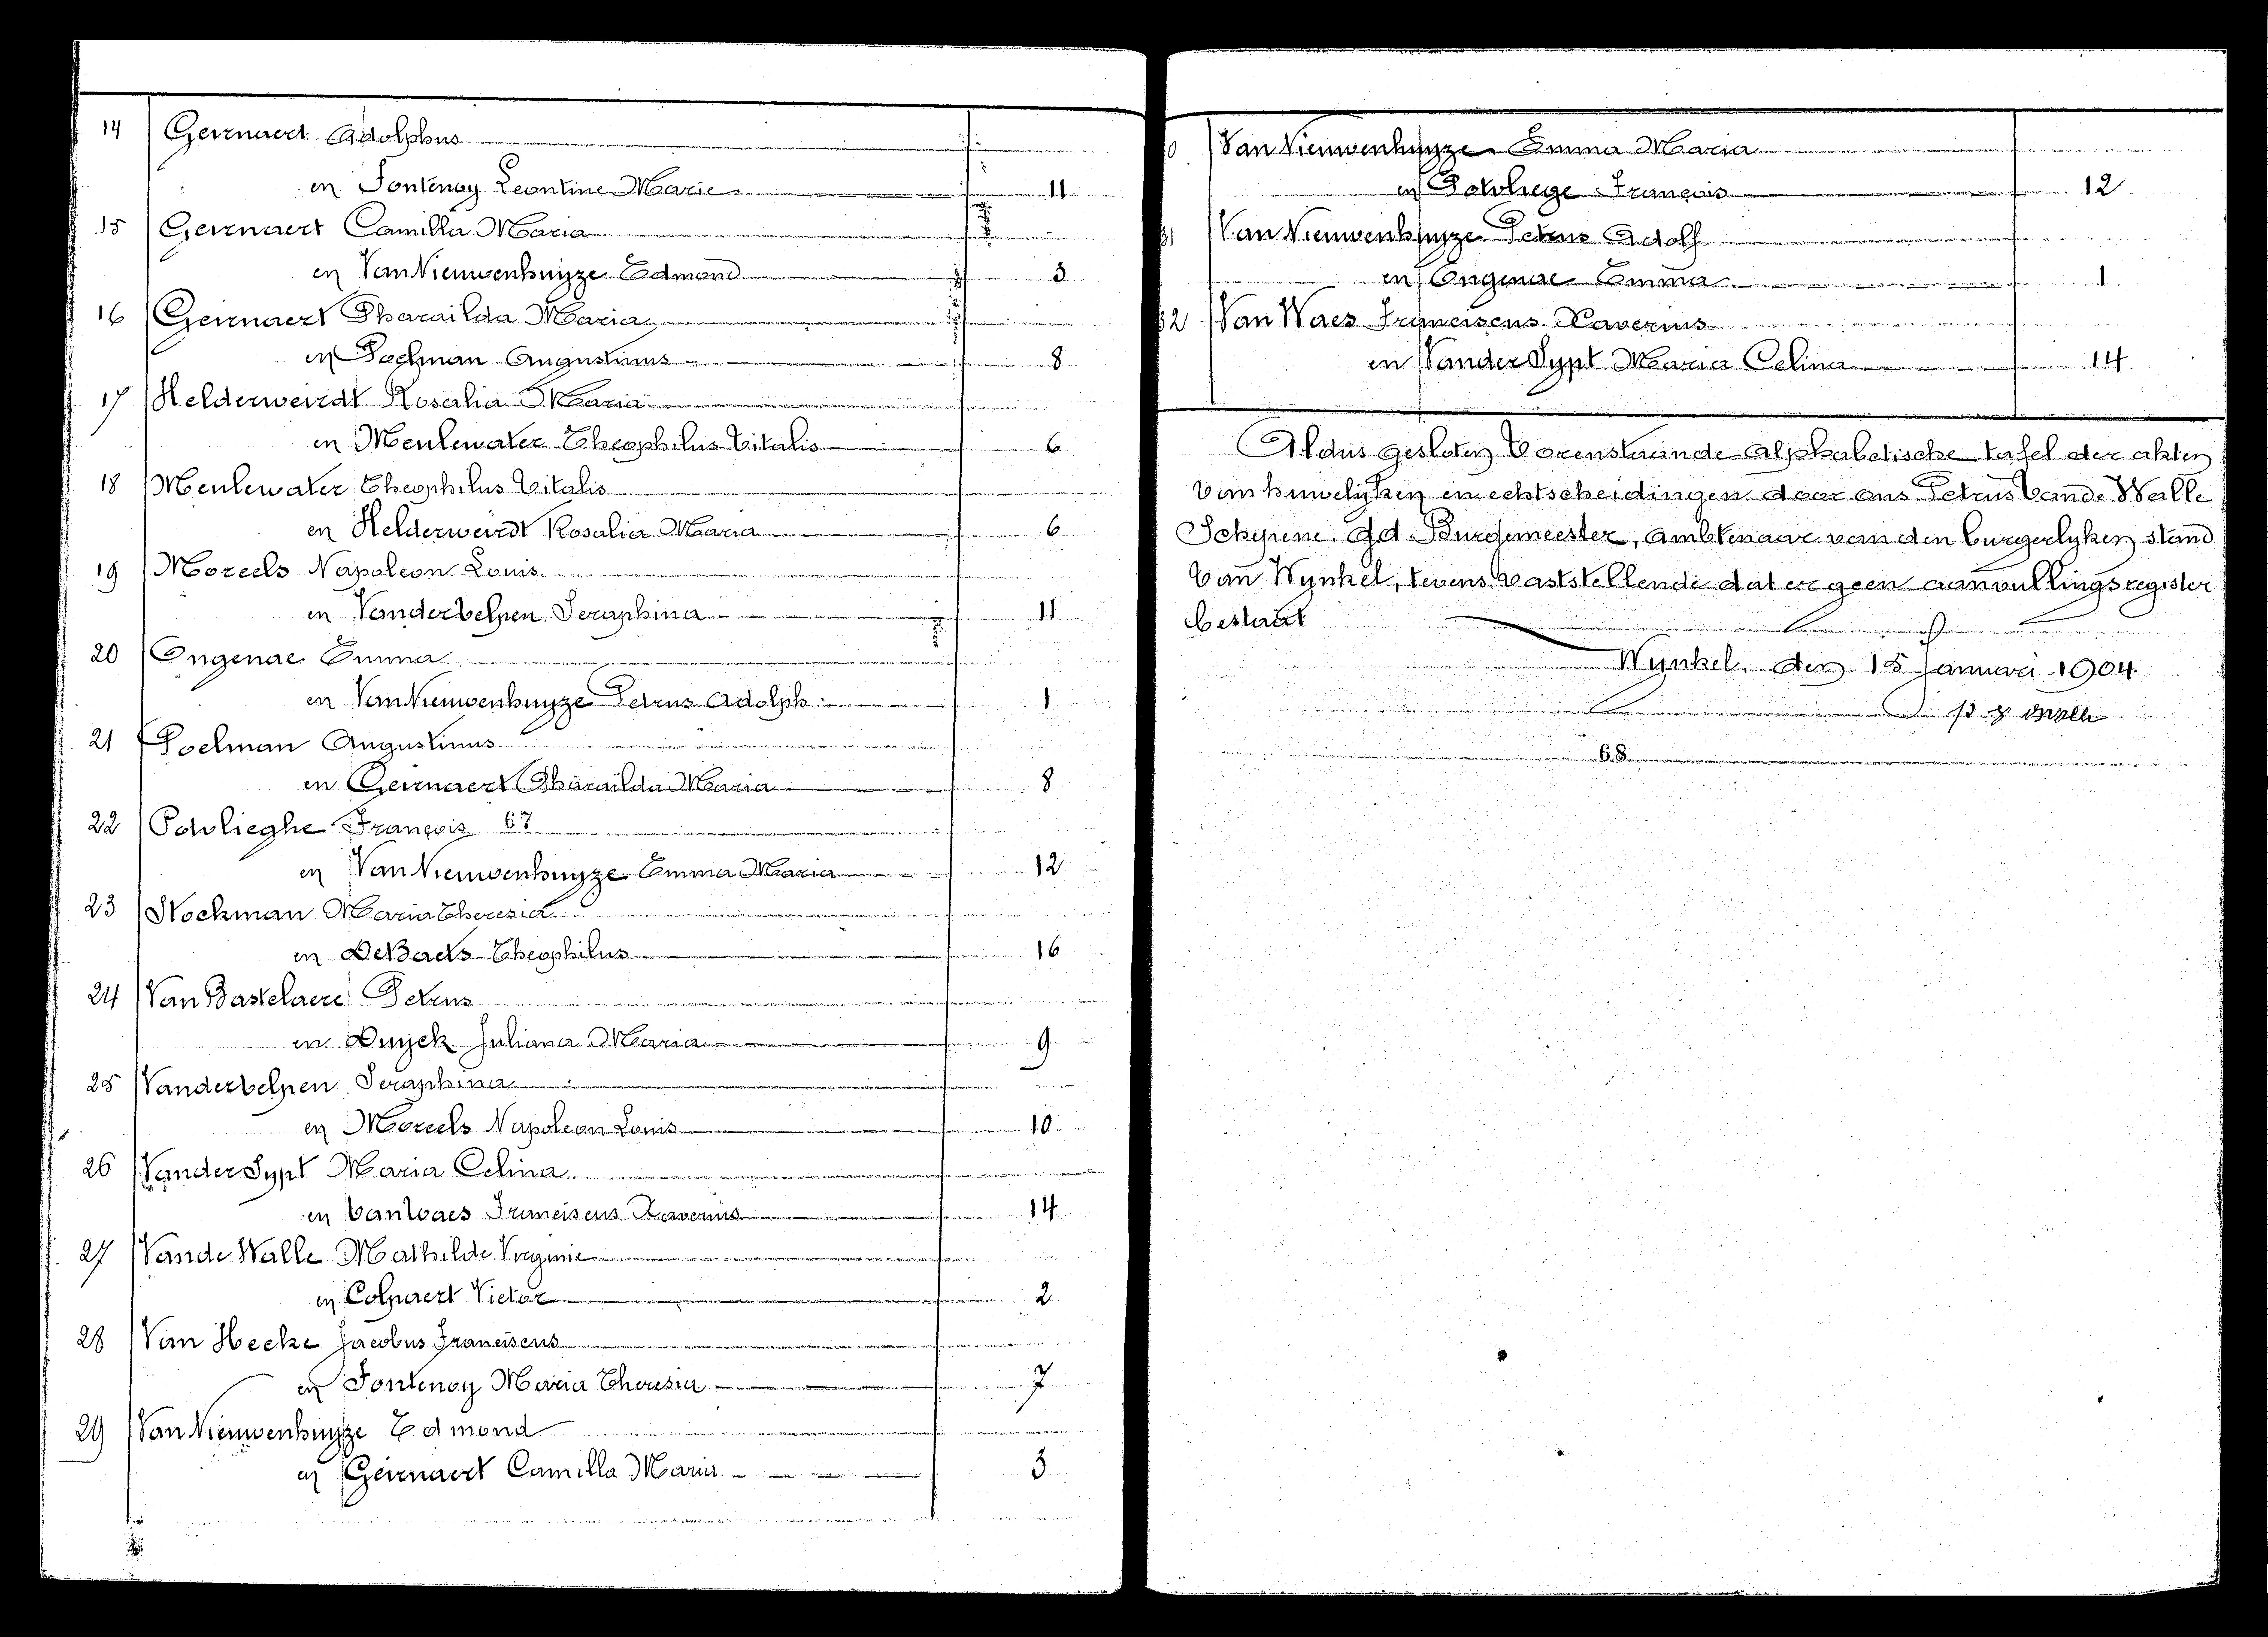 14 Geirnaert Adolphus
en Fontenoy Leontine Marie 11
15 Geirnaert Camilla Maria
en Van Nieuwenhuyze Edmond 3
16 Geirnaert Pharaïlda Maria
en Poelman Augustinus 8
17 Helderweirdt Rosalia Maria
en Meulewater Theophilus Vitalis 6
18 Meulewater Theophilus Vitalis
en Helderweirdt Rosalia Maria 6
19 Moreels Napoleon Louis
en Vanderbelpen Seraphina 11
20 Ongenae Emma
en Van Nieuwenhuyze Petrus Adolph 1
21 Poelman Augustinus
en Geirnaert Pharaïlda Maria 8
22 Potvlieghe François 67
en Van Nieuwenhuyze Emma Maria 12
23 Stockman Maria Theresia
en De Baets Theophilus 16
24 Van Bastelaere Petrus
en Duyck Juliana Maria 9
25 Vanderbelpen Seraphina
en Moreels Napoleon Louis 10
26 Vander Sypt Maria Celina
en Van Waes Franciscus Xaverius 14
27 Vande Walle Mathilde Virginie
en Colpaert Victor 2
28 Van Hecke Jacobus Franciscus
en Fontenoy Maria Theresia 7
29 Van Nieuwenhuyze Edmond
en Geirnaert Camilla Maria 3
0 Van Nieuwenhuyze Emma Maria
en Potvliege François 12
31 Van Nieuwenhuyze Petrus Adolf
en Ongenae Emma 1
32 Van Waes Franciscus Xaverius
en Vander Sypt Maria Celina 14
Aldus gesloten vorenstaande alphabetische tafel der akten
van huwelyken en echtscheidingen door ons Petrus Vande Walle
Schepene, gd. Burgemeester, ambtenaar van den burgerlyken stand
van Wynkel, tevens vaststellende dat er geen aanvullingsregister
bestaat
Wynkel, den 15 Januari 1904
Walle
68